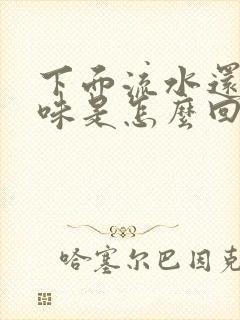 下面流水還
味是怎麼回
哈塞尔巴因克